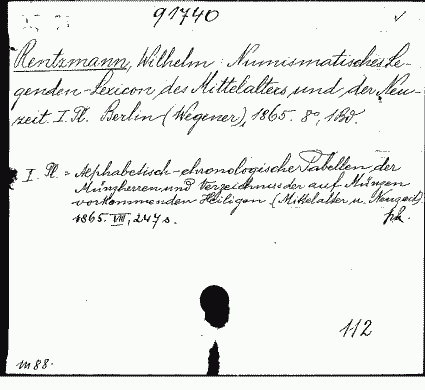 91740
Rentzmann, Wilhelm: Numismatisches Le-
genden-Lexicon des Mittelalters und der Neu-
zeit. I. Tl. Berlin (Wegener), 1865. 8°, 1 Bd.
I. Tl. = Alphabetisch-chronologische Tabellen der
Münzherren und Verzeichnis der auf Münzen
vorkommenden Heiligen. (Mittelalter u. Neuzeit).
1865. VIII, 247 s.
112
m 88.